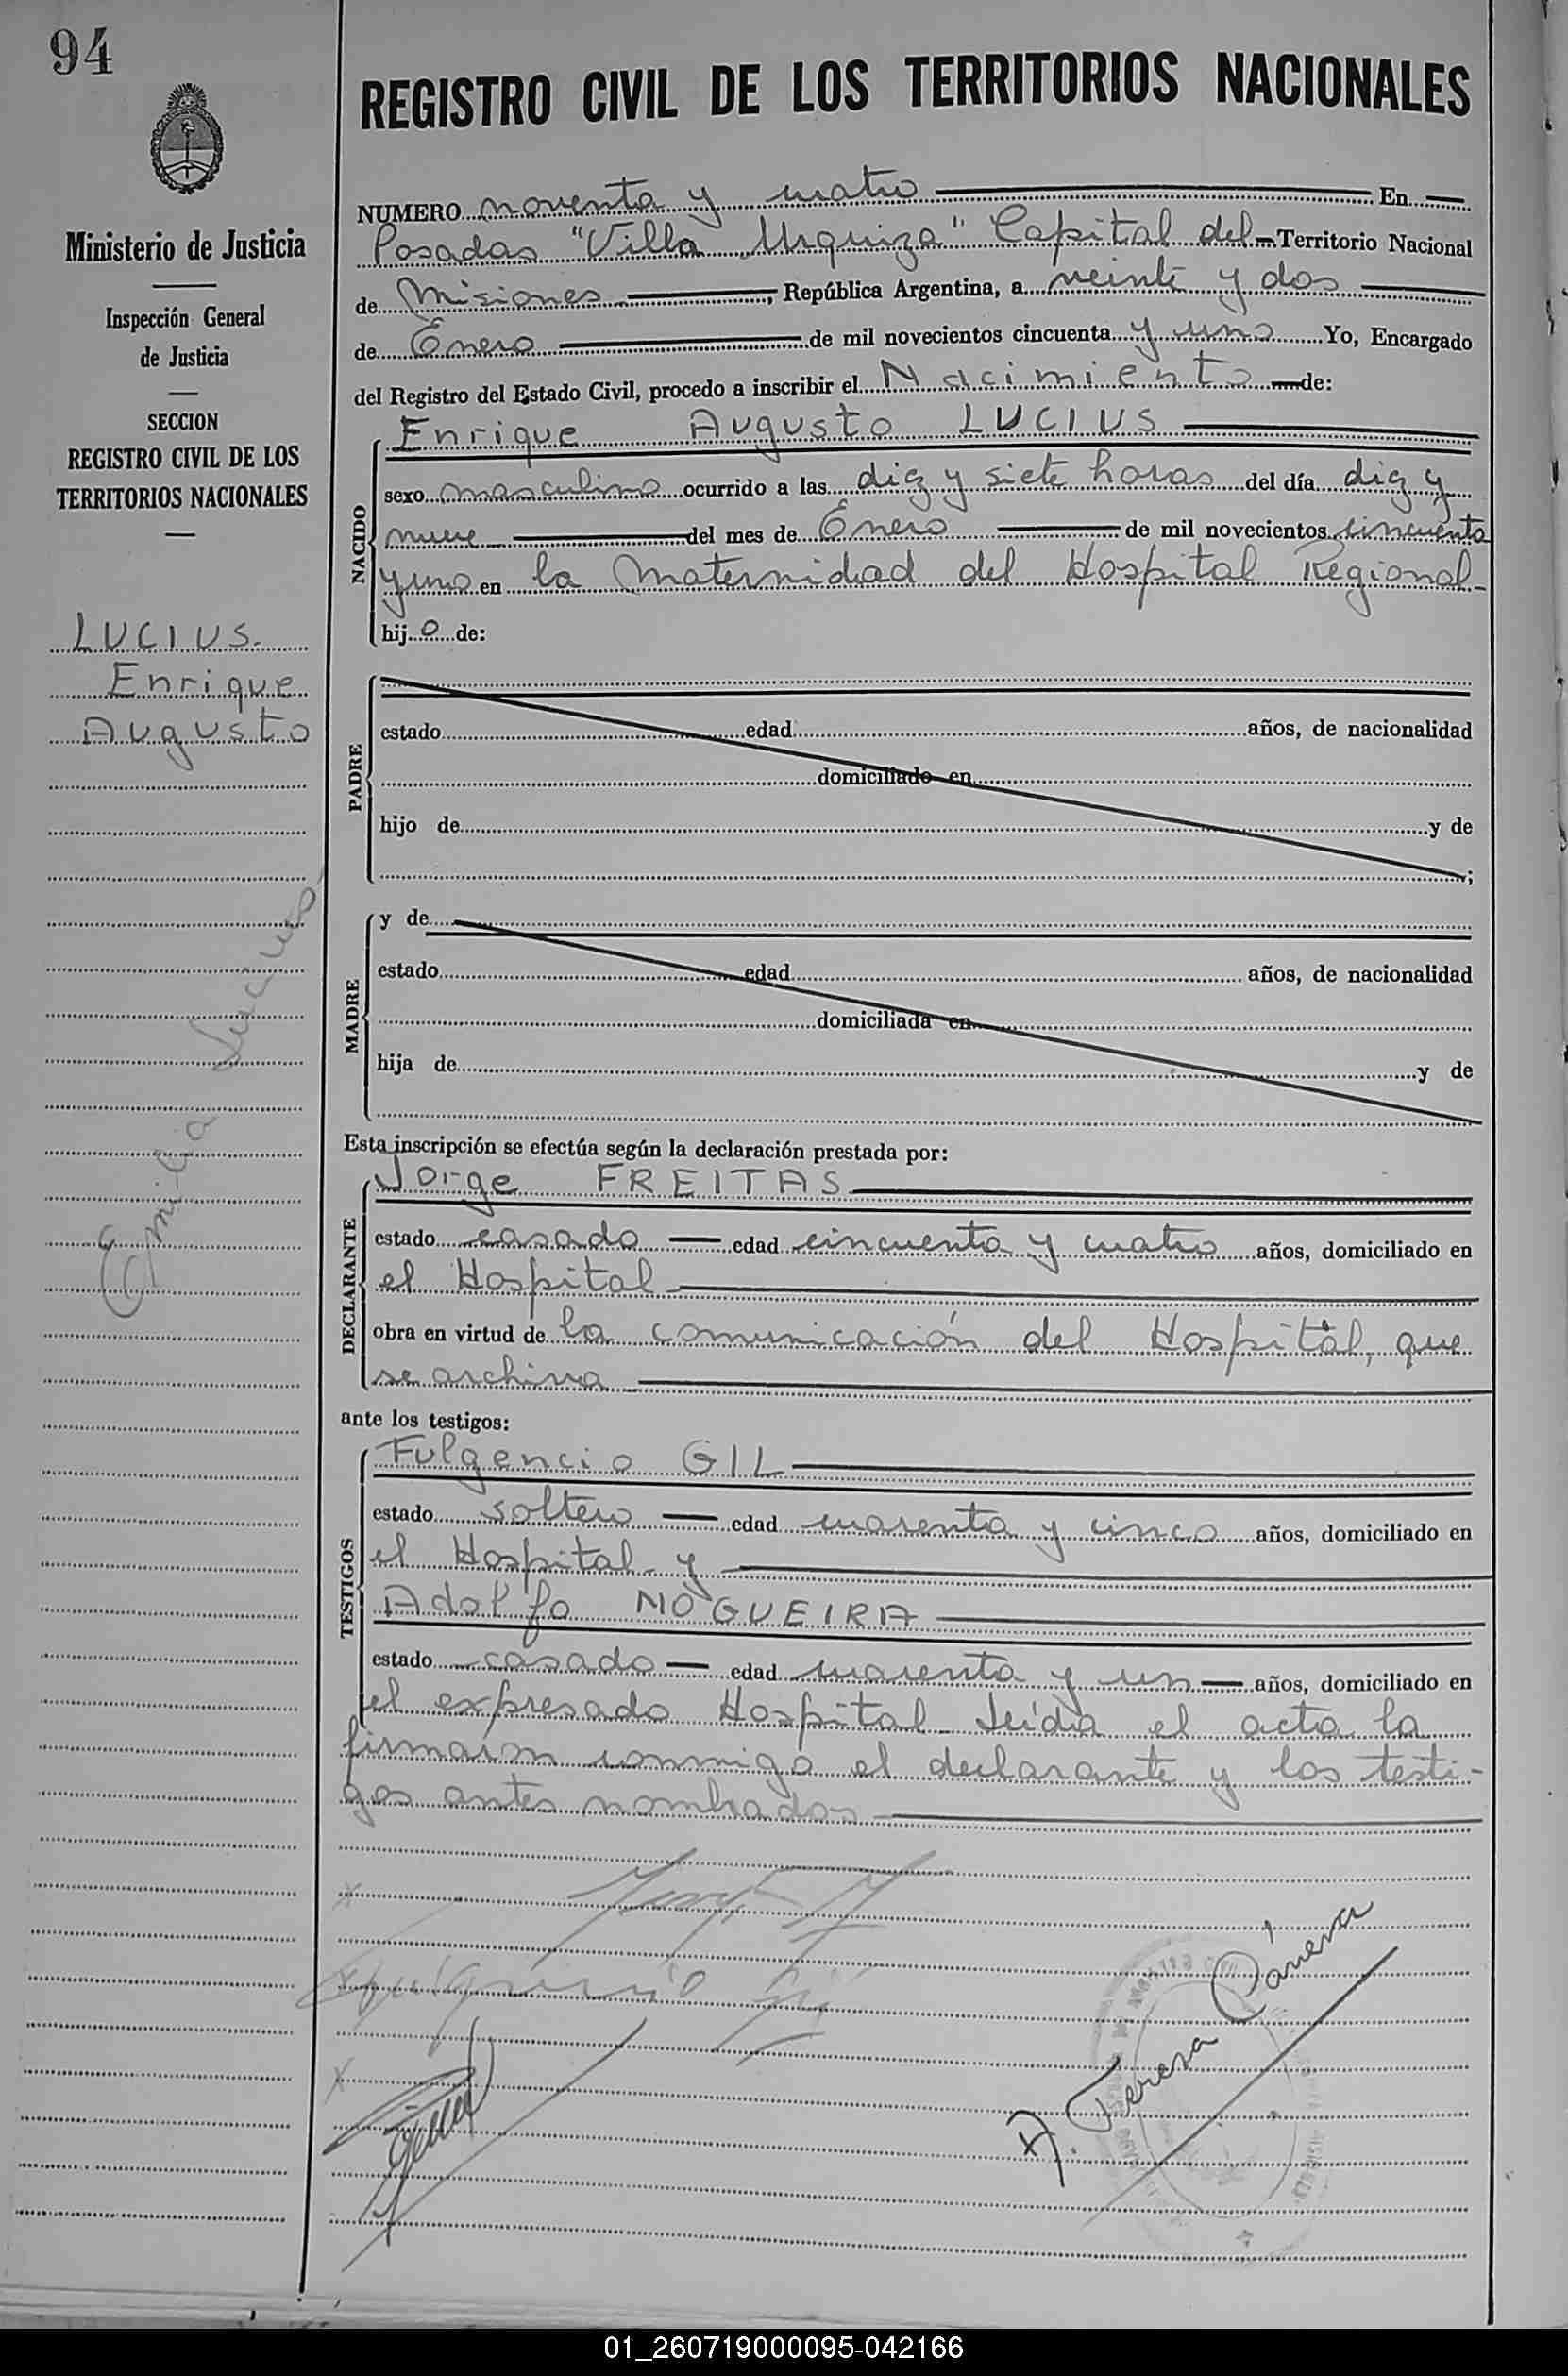 94
REGISTRO CIVIL DE LOS TERRITORIOS NACIONALES
Ministerio de Justicia
Inspección General
de Justicia
SECCION
REGISTRO CIVIL DE LOS
TERRITORIOS NACIONALES
LUCIUS.
Enrique
Augusto
Emilia Lucius
NUMERO noventa y cuatro En
Posadas "Villa Urquiza" Capital del Territorio Nacional
de Misiones, República Argentina, a veinte y dos
de Enero de mil novecientos cincuenta y uno Yo, Encargado
del Registro del Estado Civil, procedo a inscribir el Nacimiento de:
NACIDO
Enrique Augusto LUCIUS
sexo masculino ocurrido a las diez y siete horas del día diez y
nueve del mes de Enero de mil novecientos cincuenta
y uno en la Maternidad del Hospital Regional-
hijo de:
PADRE
estado edad años, de nacionalidad
domiciliado en
hijo de y de
;
MADRE
y de
estado edad años, de nacionalidad
domiciliada en
hija de y de
Esta inscripción se efectúa según la declaración prestada por:
DECLARANTE
Jorge FREITAS
estado casado edad cincuenta y cuatro años, domiciliado en
el Hospital
obra en virtud de la comunicación del Hospital, que
se archiva
ante los testigos:
TESTIGOS
Fulgencio GIL
estado soltero edad cuarenta y cinco años, domiciliado en
el Hospital y
Adolfo NOGUEIRA
estado casado edad cuarenta y un años, domiciliado en
el expresado Hospital- Leída el acta la
firmaron conmigo el declarante y los testi-
gos antes nombrados
Fulgencio Gil
A. Teresa Cáneva
01_260719000095-042166